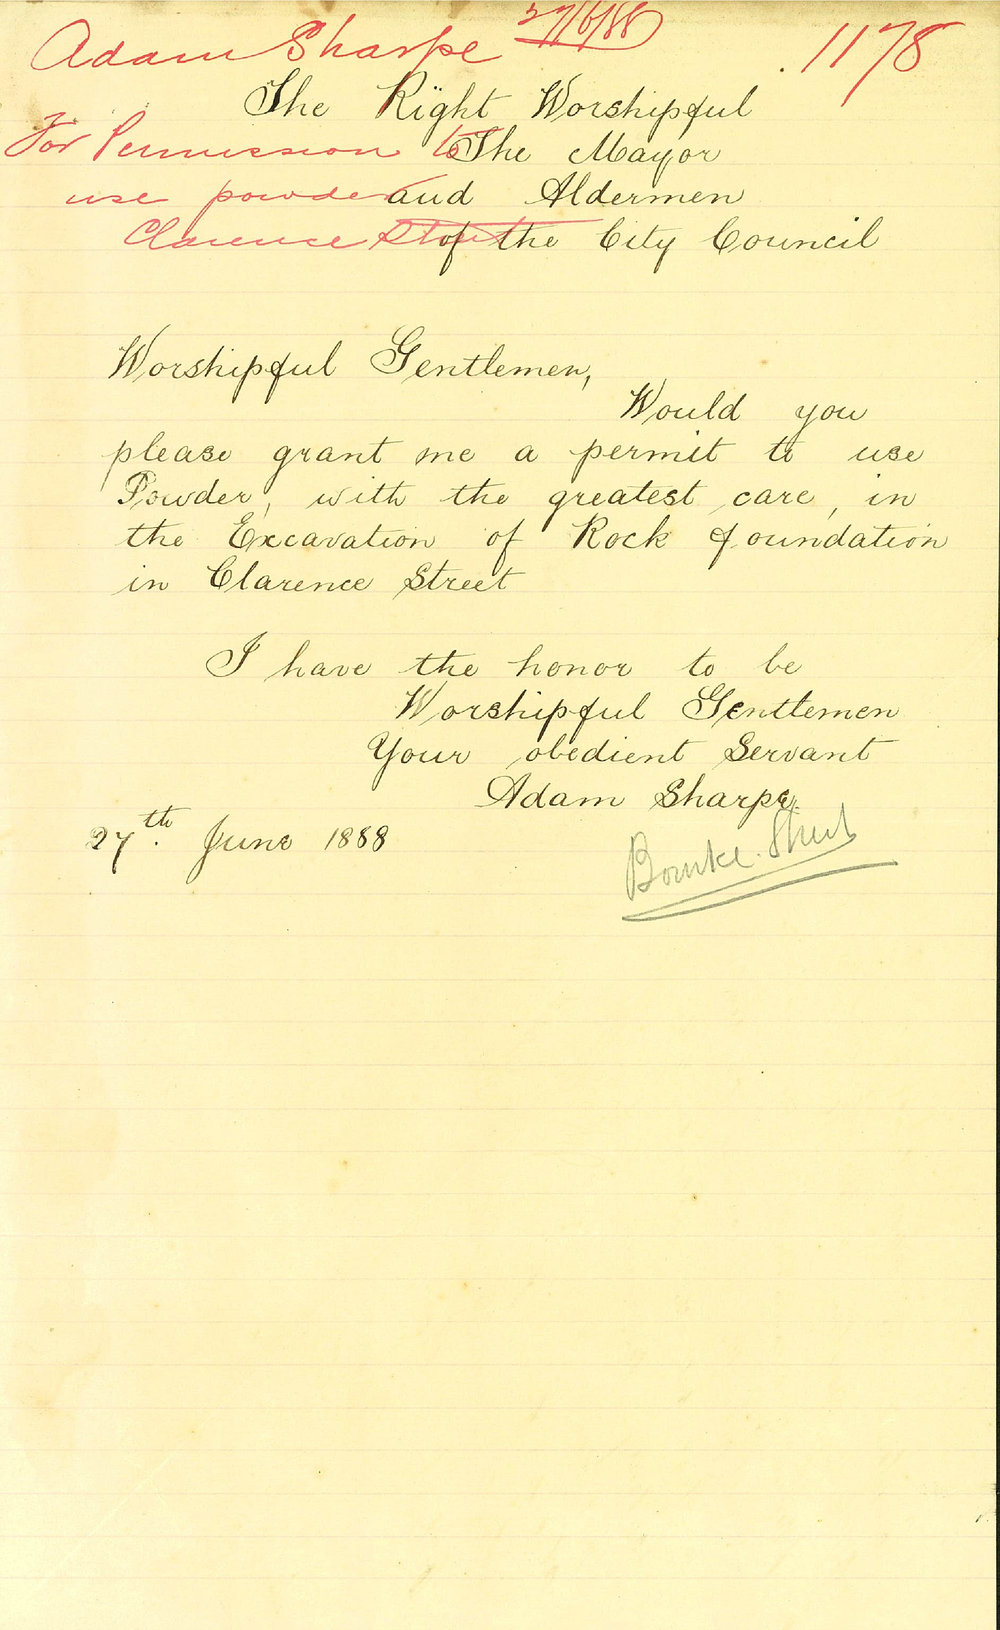 Adam Sharpe 27/6/88
1178
For Permission to
use powder
Clarence Street
The Right Worshipful
The Mayor
and Aldermen
of the City Council
Worshipful Gentlemen,
Would you
please grant me a permit to use
Powder, with the greatest care, in
the Excavation of Rock foundation
in Clarence Street
I have the honor to be
Worshipful Gentlemen
Your obedient Servant
Adam Sharpe.
27th. June 1888
Bourke Street